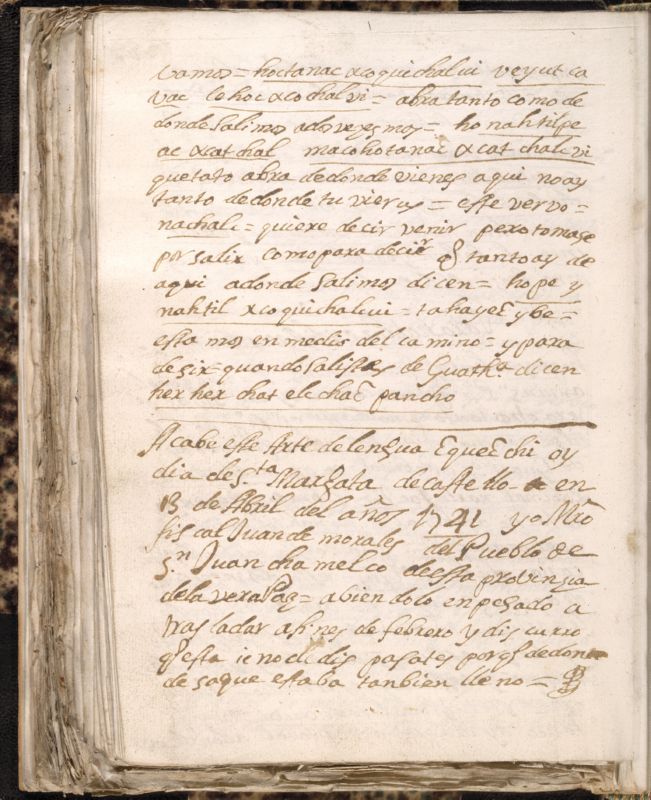 vamos = hoctanac xcoquichalvi veyut ca
vac cohoc xcochalvi = abra tanto como de
donde Salimos ados veyes mos = ho nahtil pe
ac xcat chal macohotanac xcat chalcvi
que tato abra de donde vienes aqui no ay
tanto de donde tu vieres = este vervo =
nachalc = quiere decir venir pero tomase
por salir como para decir q tanto ay de
aqui adonde Salimos dicen = hope y
nahtil xcoquichalcvi = tahayeć ybe =
esta mos en medio del camino = y para
desir = quando Salistes de Guath.a dicen
hex hex chat elchać pancho
Acabe este Arte de lengua ćqueć chi oy
dia de S.ta Margata de castello en
13 de Abril del años 1741 yo Mrō
fiscal Juan de morales del Pueblo de
S.n Juan chamelco de esta provinzia
de la vera Paz = abiendolo enpesado a
tras ladar afines de febrero y dis curro
q esta ie no de dis pasates por q de don
de saque estaba tanbien lleno =